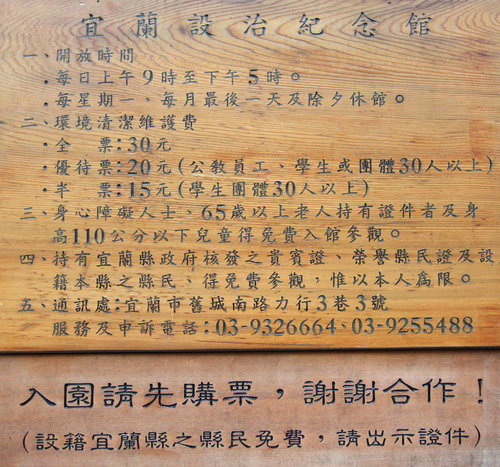 宜蘭設治紀念館
一、開放時間
．每日上午9時至下午5時。
．每星期一、每月最後一天及除夕休館。
二、環境清潔維護費
．全　票：30元
．優待票：20元(公教員工、學生或團體30人以上)
．半　票：15元(學生團體30人以上)
三、身心障礙人士、65歲以上老人持有證件者及身
高110公分以下兒童得免費入館參觀。
四、持有宜蘭縣政府核發之貴賓證、榮譽縣民證及設
籍本縣之縣民、得免費參觀，惟以本人為限。
五、通訊處：宜蘭市舊城南路力行3巷3號
服務及申訴電話：03-9326664、03-9255488
入園請先購票，謝謝合作！
(設籍宜蘭縣之縣民免費，請出示證件)